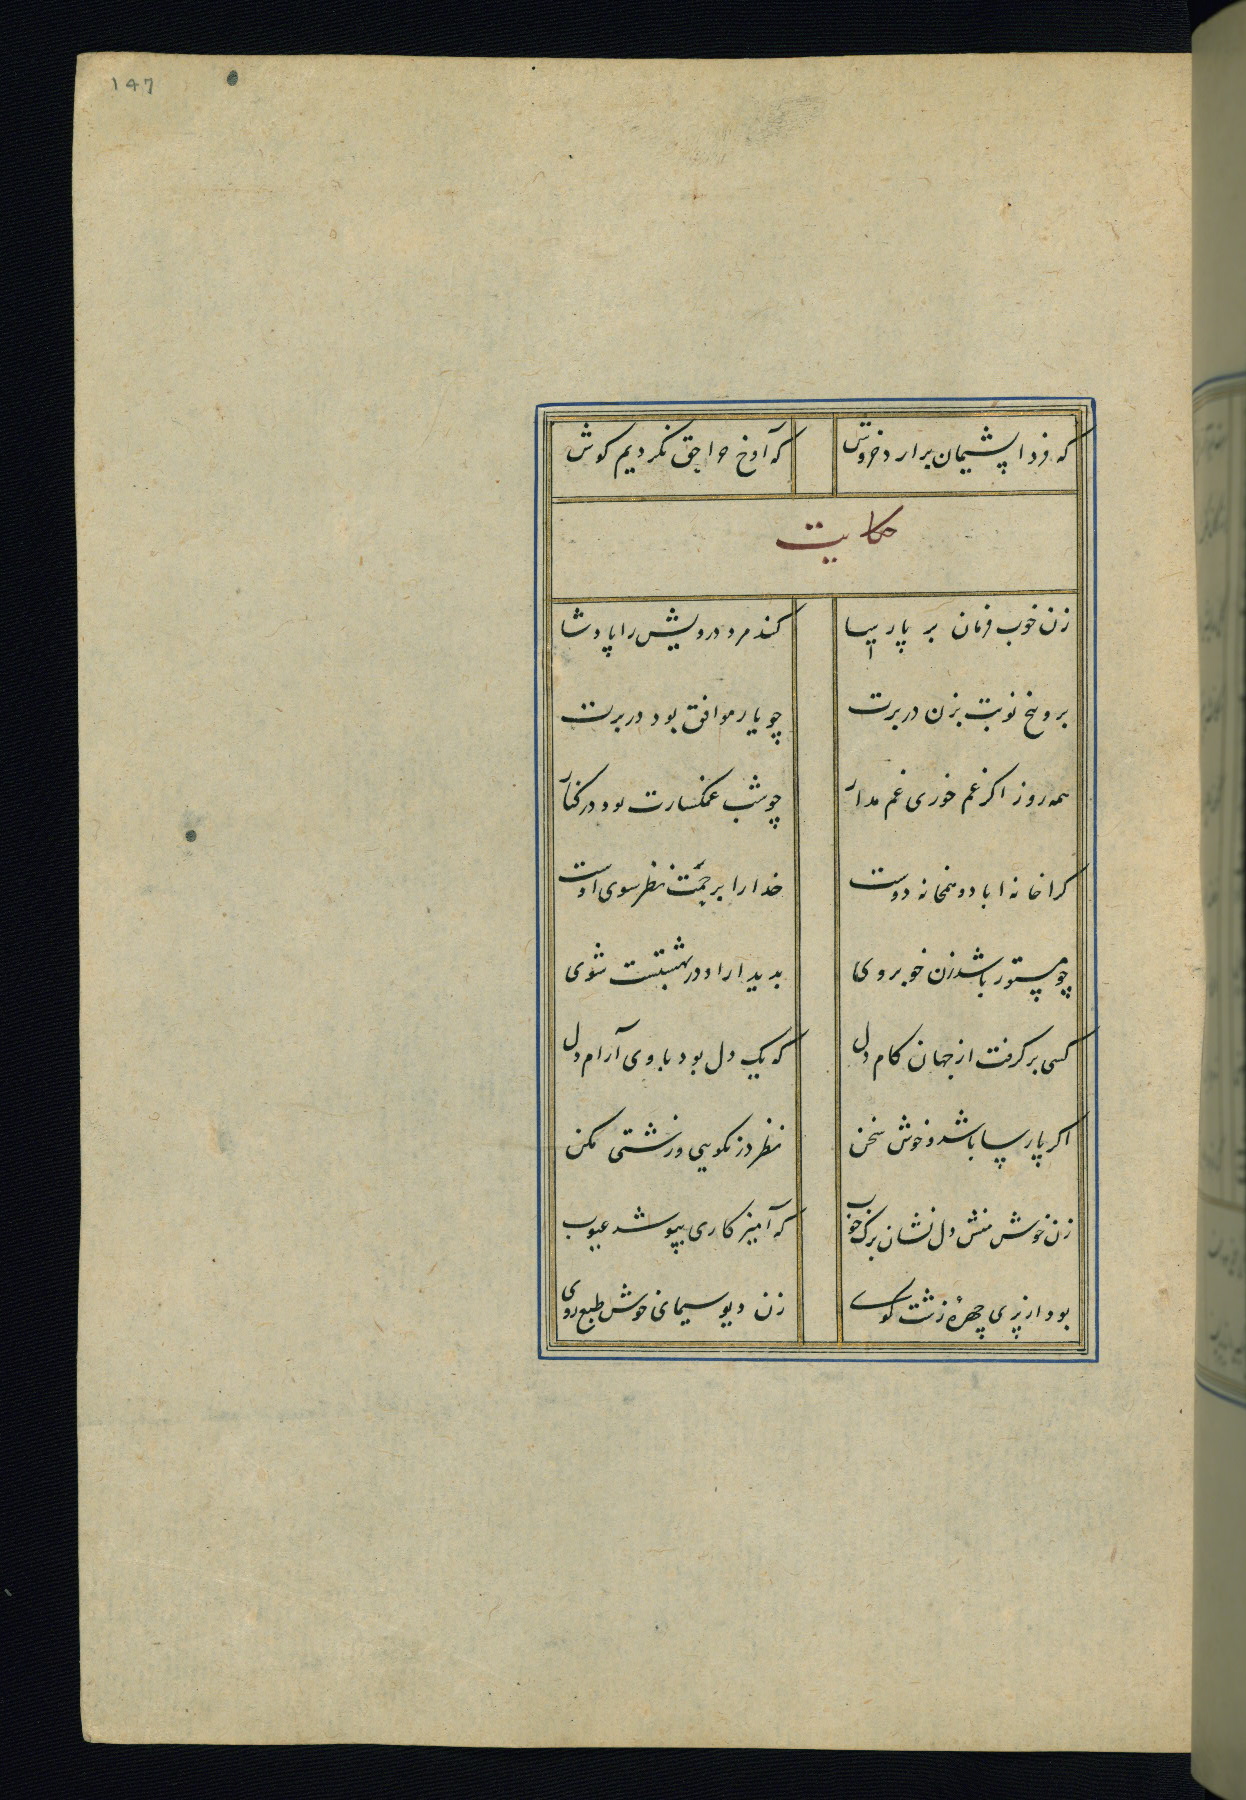 147
که فردا پشیمان برارد خروش که آوخ چرا حق نکردیم کوش
حکایت
زن خوب فرمان بر پارسا کند مرد درویش را پادشا
برو پنج نوبت بزن در برت چو یار موافق بود در برت
همه روز اکر غم خوری غم مدار چو شب غمکسارت بود در کنار
کرا خانه اباد و همخانه دوست خدا را برحمت نظر سوی اوست
چو مستور باشد زن خوبروی بدیدار او در بهشتست شوی
کسی بر کرفت از جهان کام دل که یک دل بود با وی آرام دل
اکر پارسا باشد و خوش سخن نظر در نکویی و زشتی مکن
زن خوش منش دل نشان ترکه خوب که آمیزکاری بپوشد عیوب
بود از پری چهرهٔ زشت کوی زن دیو سیمای خوش طبع روی